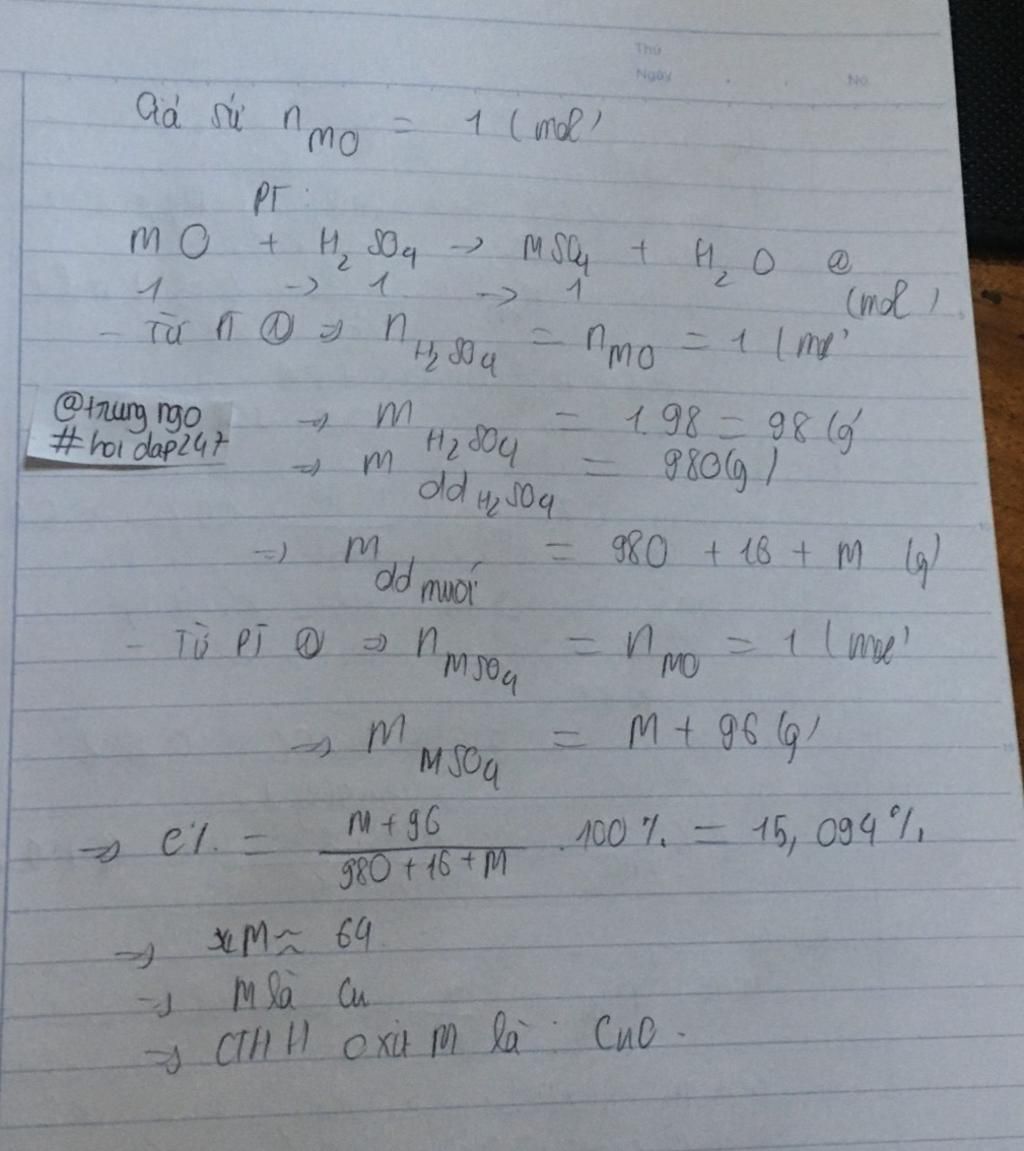 Thứ
Ngày No.
Giả sử n MO = 1 (mol)
PT:
MO + H2SO4 -> MSO4 + H2O ①
1 -> 1 -> 1 (mol)
- Từ PT ① => n H2SO4 = n MO = 1 (mol)
@trung ngo
#hoidap247
=> m H2SO4 = 1.98 = 98 (g)
=> m dd H2SO4 = 980 (g)
=> m dd muối = 980 + 16 + M (g)
- Từ PT ① => n MSO4 = n MO = 1 (mol)
=> m MSO4 = M + 96 (g)
=> C% = (M + 96)/(980 + 16 + M) .100% = 15,094%
=> M ≈ 64
=> M là Cu
=> CTHH oxit M là : CuO.